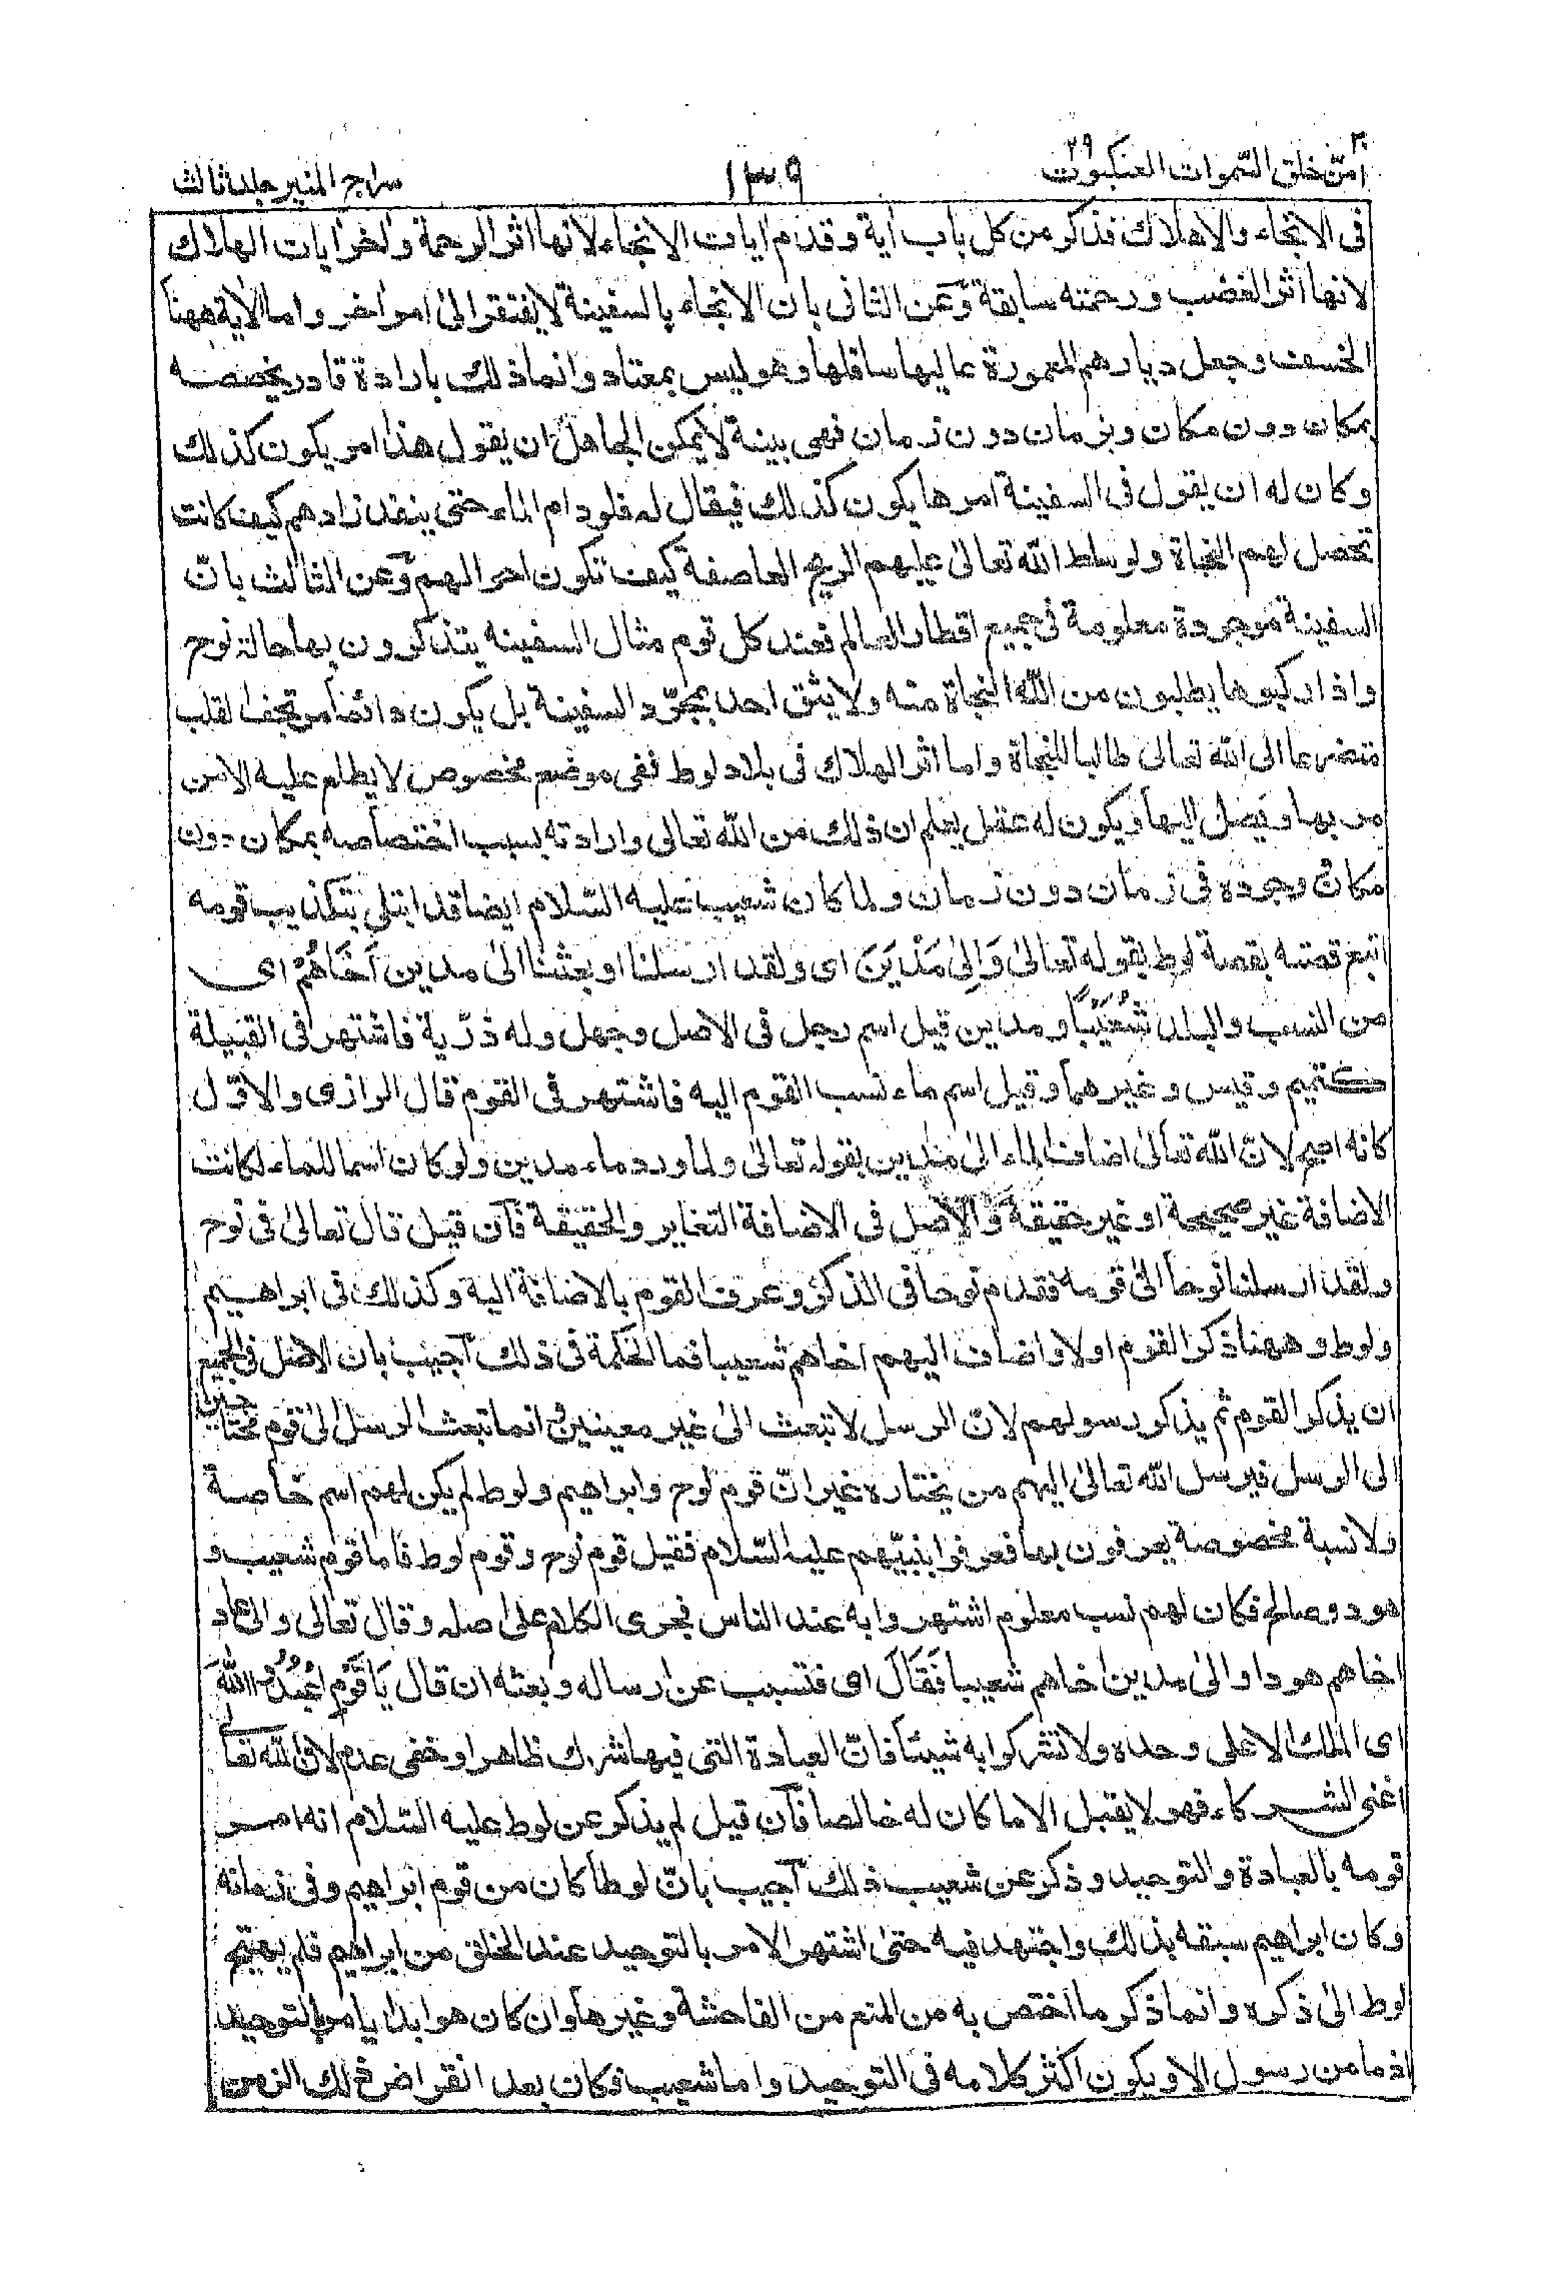 امّن خلق السّموات ٢٠ العنكبوت ٢٩
١٣٩
سراج المنير جلد ثالث
فى الانجاء والاهلاك فذكر من كل باب آية وقدم آيات الانجاء لانها اثر الرحمة واخر ايات الهلاك
لانها اثر الغضب ورحمته سابقة وعن الثانى بان الانجاء بالسفينة لا يفتقر الى امر اخر واما الآية ههنا
الخسف وجعل ديارهم المعمورة عاليها سافلها وهو ليس بمعتاد وانما ذلك بارادة قادر يخصصه
بمكان دون مكان وبزمان دون زمان فهى بينة لا يمكن الجاهل ان يقول هذا امر يكون كذلك
وكان له ان يقول فى السفينة امرها يكون كذلك فيقال له فلو دام الماء حتى ينفد زادهم كيف كانت
تحصل لهم النجاة ولو سلط الله تعالى عليهم الريح العاصفة كيف تكون احوالهم وعن الثالث بانّ
السفينة موجودة معلومة فى جميع اقطار العالم فعند كل قوم مثال السفينه يتذكرون بها حالة نوح
واذا ركبوها يطلبون من الله النجاة منه ولا يثق احد بمجرّد السفينة بل يكون دائما مرتجف القلب
متضرعا الى الله تعالى طالبا للنجاة واما اثر الهلاك فى بلاد لوط ففى موضع مخصوص لا يطلع عليه الا من
مر بها ويصل اليها ويكون له عقل يعلم ان ذلك من الله تعالى وارادته بسبب اختصاصه بمكان دون
مكان وجوده فى زمان دون زمان ولما كان شعيب عليه السّلام ايضا قد ابتلى بتكذيب قومه
اتبع قصته بقصة لوط بقوله تعالىٰ وَاِلىٰ مَدْيَنَ اى ولقد ارسلنا او بعثنا الى مدين اَخَاهُمْ اى
من النسب والبلد شُعَيْبًا ومدين قيل اسم رجل فى الاصل وجهل وله ذرّية فاشتهر فى القبيلة
كتميم وقيس وغيرهما وقيل اسم ماء نسب القوم اليه فاشتهر فى القوم قال الرازى والاوّل
كانه اصح لانّ الله تعالىٰ اضاف الماء الى مدين بقوله تعالىٰ ولما ورد ماء مدين ولو كان اسما للماء لكانت
الاضافة غير صحيحة او غير حقيقة والاصل فى الاضافة التغاير والحقيقة فآن قيل قال تعالىٰ فى نوح
ولقد ارسلنا نوحا الىٰ قومه فقدم نوحا فى الذكر وعرف القوم بالاضافة اليه وكذلك فى ابراهيم
ولوط وههنا ذكر القوم اولا واضاف اليهم اخاهم شعيبا فما الحكمة فى ذلك آجيب بان الاصل فى الجميع
ان يذكر القوم ثم يذكر رسولهم لانّ الرسل لا تبعث الىٰ غير معينين وانما تبعث الرسل الىٰ قوم محتاجين
الى الرسل فيرسل الله تعالىٰ اليهم من يختاره غير انّ قوم نوح وابراهيم ولوط لم يكن لهم اسم خاصة
ولا نسبة مخصوصة يعرفون بها فعرفوا بنبيّهم عليه السّلام فقيل قوم نوح وقوم لوط فاما قوم شعيب و
هود وصالح فكان لهم نسب معلوم اشتهروا به عند الناس فجرى الكلام على اصله وقال تعالى والى عاد
اخاهم هودا والىٰ مدين اخاهم شعيبا فَقَالَ اى فتسبب عن ارساله وبعثه ان قال يَا قَوْمِ اعْبُدُوا اللّٰهَ
اى الملك الاعلى وحده ولا تشركوا به شيئا فانّ العبادة التى فيها شرك ظاهر او خفى عدم لان الله تعالى
اغنى الشركاء فهو لا يقبل الا ما كان له خالصا فآن قيل لم يذكر عن لوط عليه السّلام انه امر
قومه بالعبادة والتوحيد وذكر عن شعيب ذلك آجيب بانّ لوطا كان من قوم ابراهيم وفى زمانه
وكان ابراهيم سبقه بذلك واجتهد فيه حتى اشتهر الامر بالتوحيد عند الخلق من ابراهيم فلم يحتج
لوط الىٰ ذكره وانما ذكر ما اختص به من المنع من الفاحشة وغيرها وان كان هو ابدا يامر بالتوحيد
اذ ما من رسول الا ويكون اكثر كلامه فى التوحيد واما شعيب فكان بعد انقراض ذلك الزمن